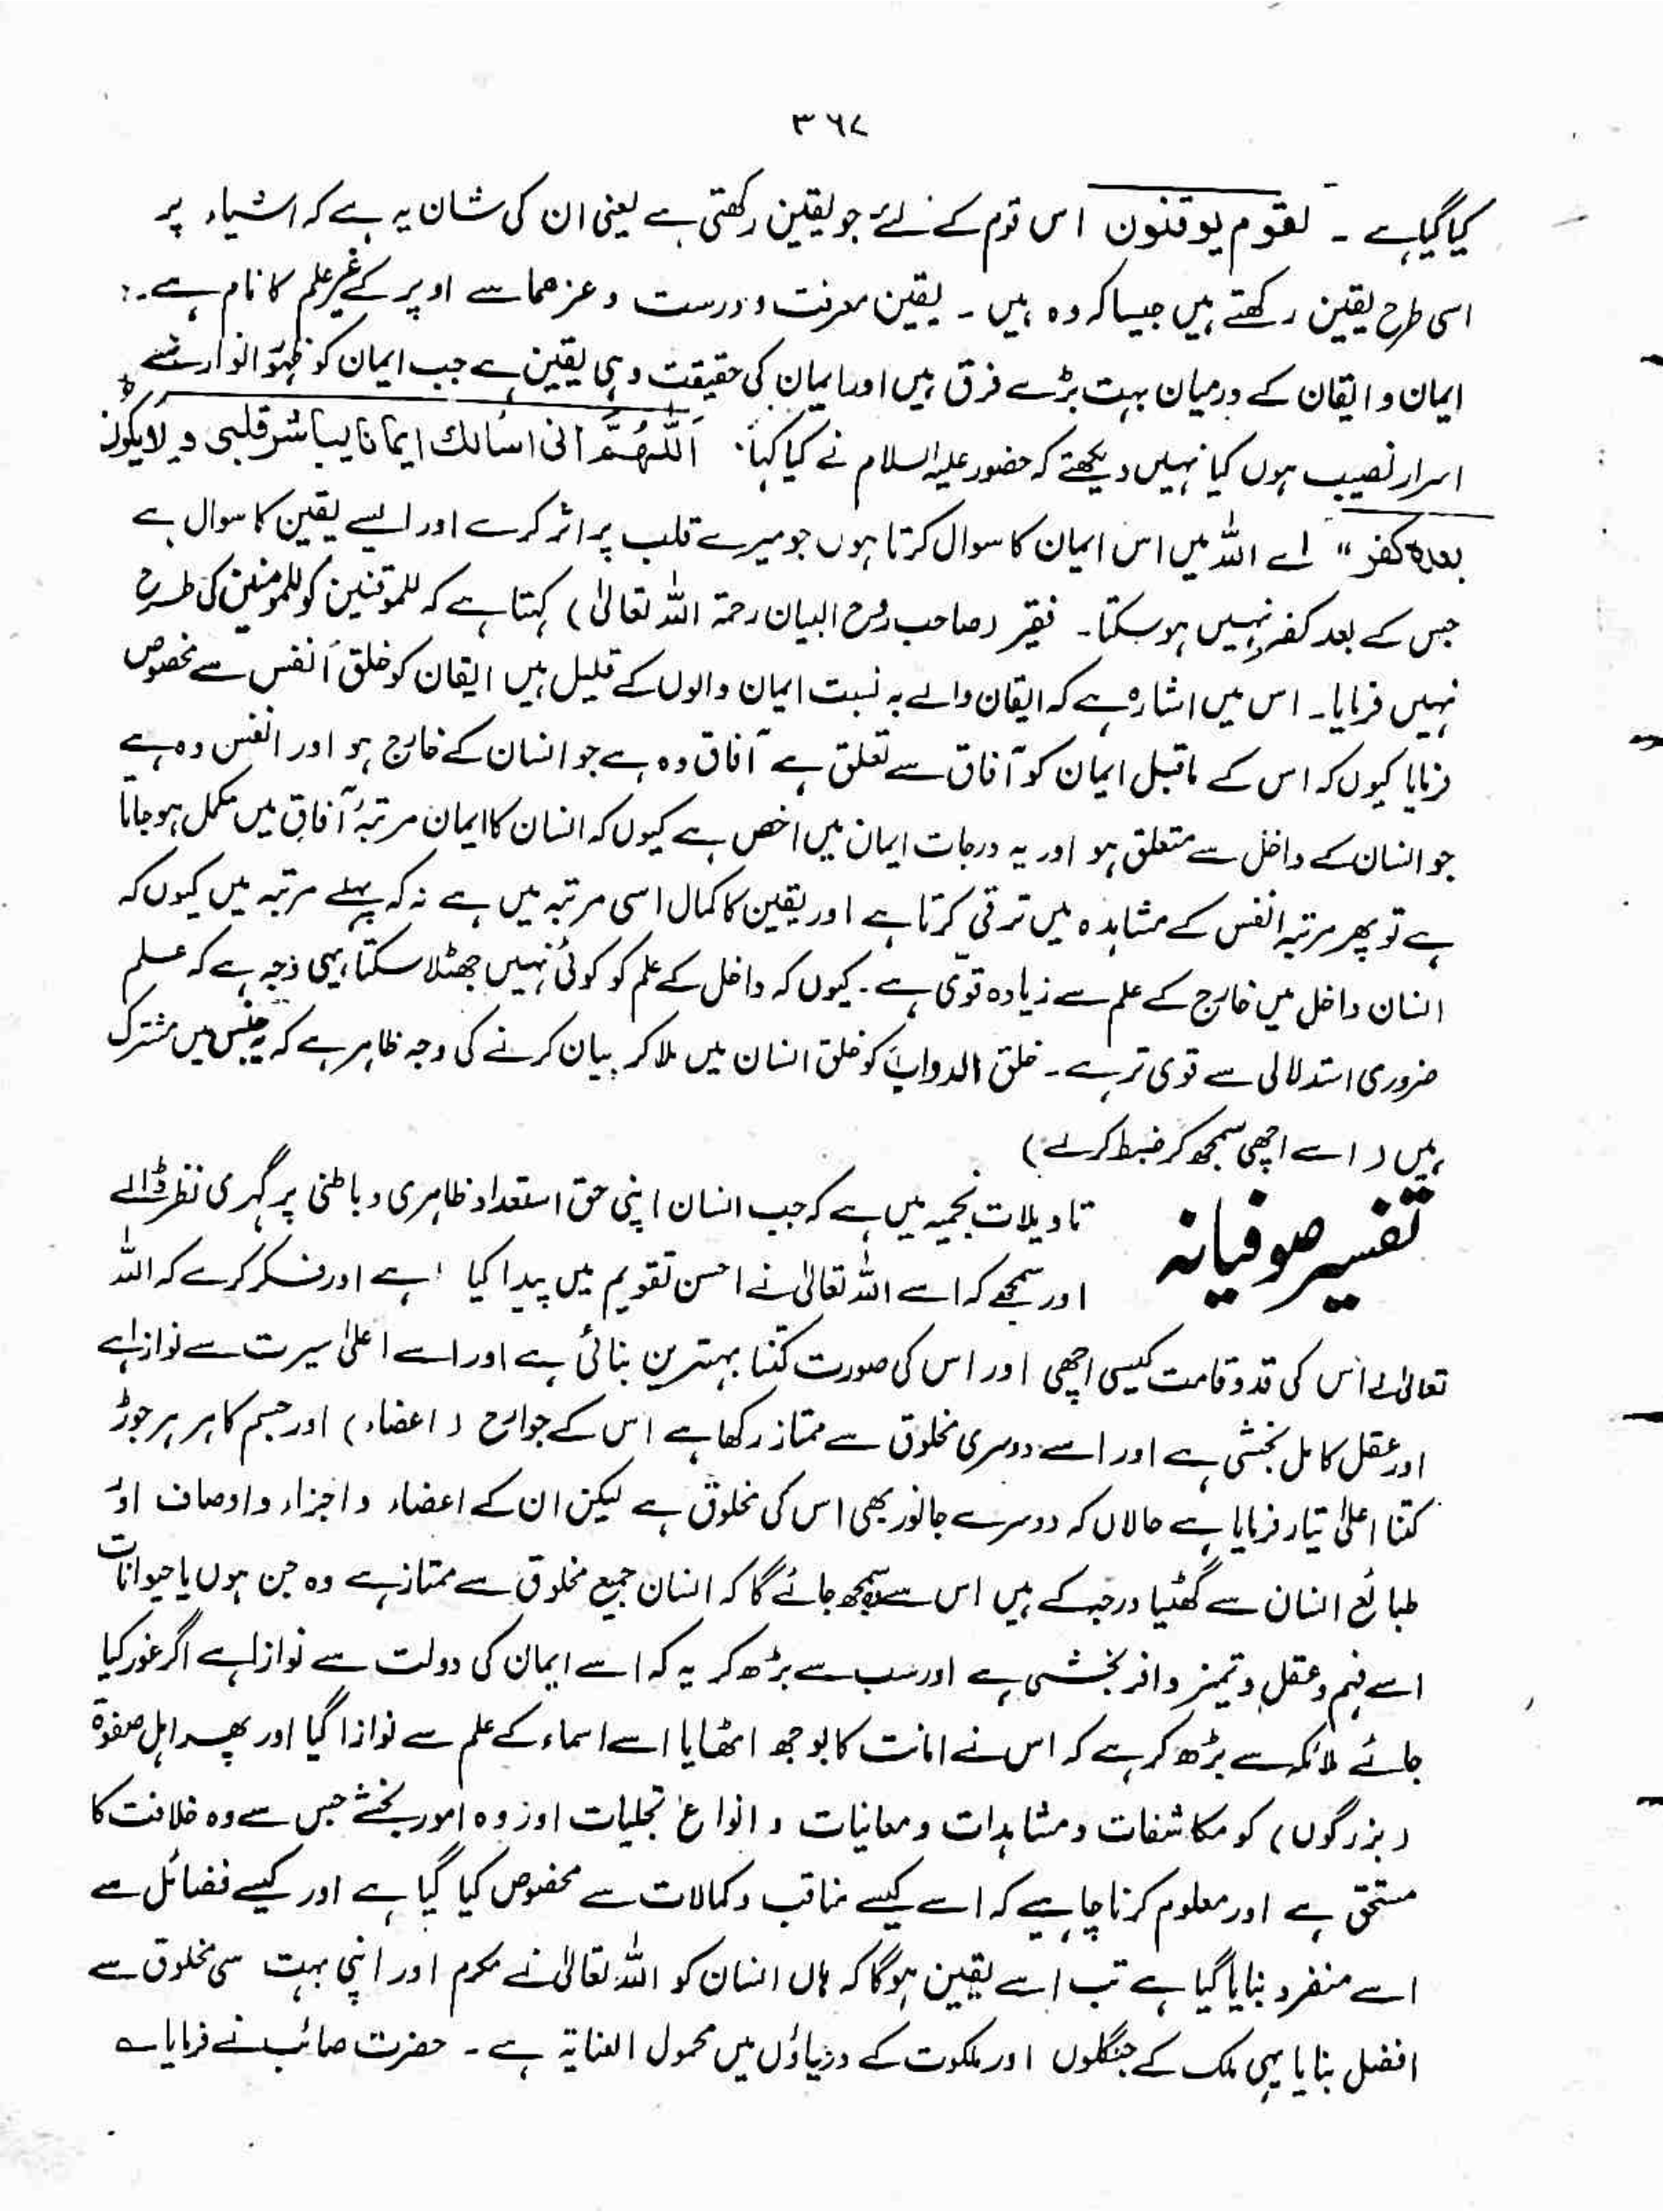 ۳۶۷
کیا گیا ہے ۔ لقوم یوقنون اس قوم کے لئے جو یقین رکھتی ہے یعنی ان کی شان یہ ہے کہ اشیاء پر
اسی طرح یقین رکھتے ہیں جیسا کہ وہ ہیں ۔ یقین معرفت و درست و غرھما سے اوپر کے غیر علم کا نام ہے ۔:
ایمان و ایقان کے درمیان بہت بڑے فرق ہیں اور ایمان کی حقیقت وہی یقین ہے جب ایمان کو ظہور انوار سے
اسرار نصیب ہوں کیا نہیں دیکھتے کہ حضور علیہ السلام نے کیا کہا: اَللّٰھُمَّ انی اسالك ایمانا یباشر قلبی و لایکون
بعدہ کفر " اے اللہ میں اس ایمان کا سوال کرتا ہوں جو میرے قلب پر اثر کرے اور ایسے یقین کا سوال ہے
جس کے بعد کفر نہیں ہو سکتا ۔ فقیر (صاحب روح البیان رحمۃ اللہ تعالیٰ) کہتا ہے کہ للموقنین کو للمومنین کی طرح
نہیں فرمایا ۔ اس میں اشارہ ہے کہ ایقان والے بہ نسبت ایمان والوں کے قلیل ہیں ایقان کو خلق اَنفس سے مخصوص
فرمایا کیوں کہ اس کے ماقبل ایمان کو آفاق سے تعلق ہے آفاق وہ ہے جو انسان کے خارج ہو اور انفس وہ ہے
جو انسان کے داخل سے متعلق ہو اور یہ درجات ایمان میں اخص ہے کیوں کہ انسان کا ایمان مرتبۂ آفاق میں مکمل ہو جاتا
ہے تو پھر مرتبہ انفس کے مشاہدہ میں ترقی کرتا ہے اور یقین کا کمال اسی مرتبہ میں ہے نہ کہ پہلے مرتبہ میں کیوں کہ
انسان داخل میں خارج کے علم سے زیادہ قوی ہے ۔ کیوں کہ داخل کے علم کو کوئی نہیں جھٹلا سکتا یہی وجہ ہے کہ علم
ضروری استدلالی سے قوی تر ہے ۔ خلق الدواب کو خلق انسان میں ملا کر بیان کرنے کی وجہ ظاہر ہے کہ یہ جنس میں مشترک
ہیں (اسے اچھی سمجھ کر ضبط کرلے)
تفسیر صوفیانہ تاویلات نجمیہ میں ہے کہ جب انسان اپنی حق استعداد ظاہری و باطنی پر گہری نظر ڈالے
اور سمجھے کہ اسے اللہ تعالیٰ نے احسن تقویم میں پیدا کیا ہے اور فکر کرے کہ اللہ
تعالیٰ نے اس کی قدوقامت کیسی اچھی اور اس کی صورت کتنا بہترین بنائی ہے اور اسے اعلیٰ سیرت سے نوازا ہے
اور عقل کامل بخشی ہے اور اسے دوسری مخلوق سے ممتاز رکھا ہے اس کے جوارح (اعضاء) اور جسم کا ہر ہر جوڑ
کتنا اعلیٰ تیار فرمایا ہے حالاں کہ دوسرے جانور بھی اس کی مخلوق ہے لیکن ان کے اعضاء و اجزاء و اوصاف اور
طبائع انسان سے گھٹیا درجہ کے ہیں اس سے سمجھ جائے گا کہ انسان جمیع مخلوق سے ممتاز ہے وہ جن ہوں یا حیوانات
اسے فہم و عقل و تمیز وافر بخشی ہے اور سب سے بڑھ کر یہ کہ اسے ایمان کی دولت سے نوازا ہے اگر غور کیا
جائے ملائکہ سے بڑھ کر ہے کہ اس نے امانت کا بوجھ اٹھایا اسے اسماء کے علم سے نوازا گیا اور پھر اہل صفوۃ
(بزرگوں) کو مکاشفات و مشاہدات و معانیات و انواع تجلیات اور وہ امور بخشے جس سے وہ خلافت کا
مستحق ہے اور معلوم کرنا چاہیے کہ اسے کیسے مناقب و کمالات سے مخصوص کیا گیا ہے اور کیسے فضائل سے
اسے منفرد بنایا گیا ہے تب اسے یقین ہوگا کہ ہاں انسان کو اللہ تعالیٰ نے مکرم اور اپنی بہت سی مخلوق سے
افضل بنایا یہی ملک کے جنگلوں اور ملکوت کے دریاؤں میں محمول العنایۃ ہے ۔ حضرت صائب نے فرمایا ؎